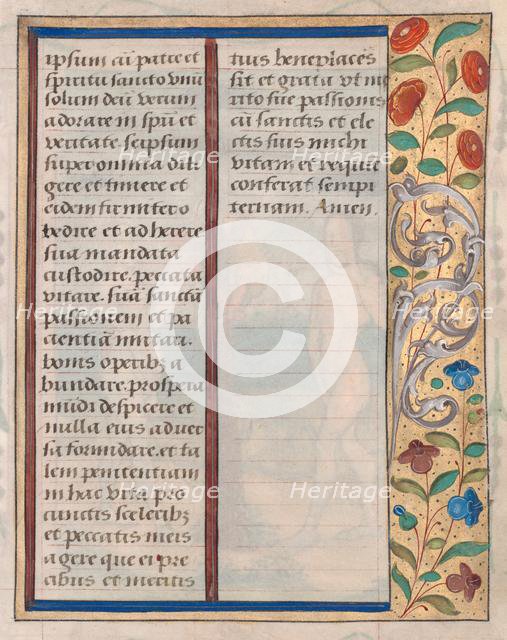 ipsum cū patre et
spiritu sancto vnū
solum deū verum
adorare in spū et
veritate. seipsum
super omnia dili
gere et timere et
eidem firmiter o
bedire et adherere
sua mandata
custodire. peccata
vitare. suā sanctā
passionem et pa
cientiā imitari.
bonis operibꝫ a
bundare. prospera
mūdi despicere et
nulla eius aduer
sa formidare. et ta
lem penitentiam
in hac vita pro
cunctis sceleribꝫ
et peccatis meis
agere que ei pre
cibus et meritis
tius beneplacēs
sit et grata vt me
rito sue passionis
cū sanctis et ele
ctis suis michi
vitam et requiē
conferat sempi
ternam. Amen.
Heritage
Heritage
Heritage
Heritage
Heritage
Heritage